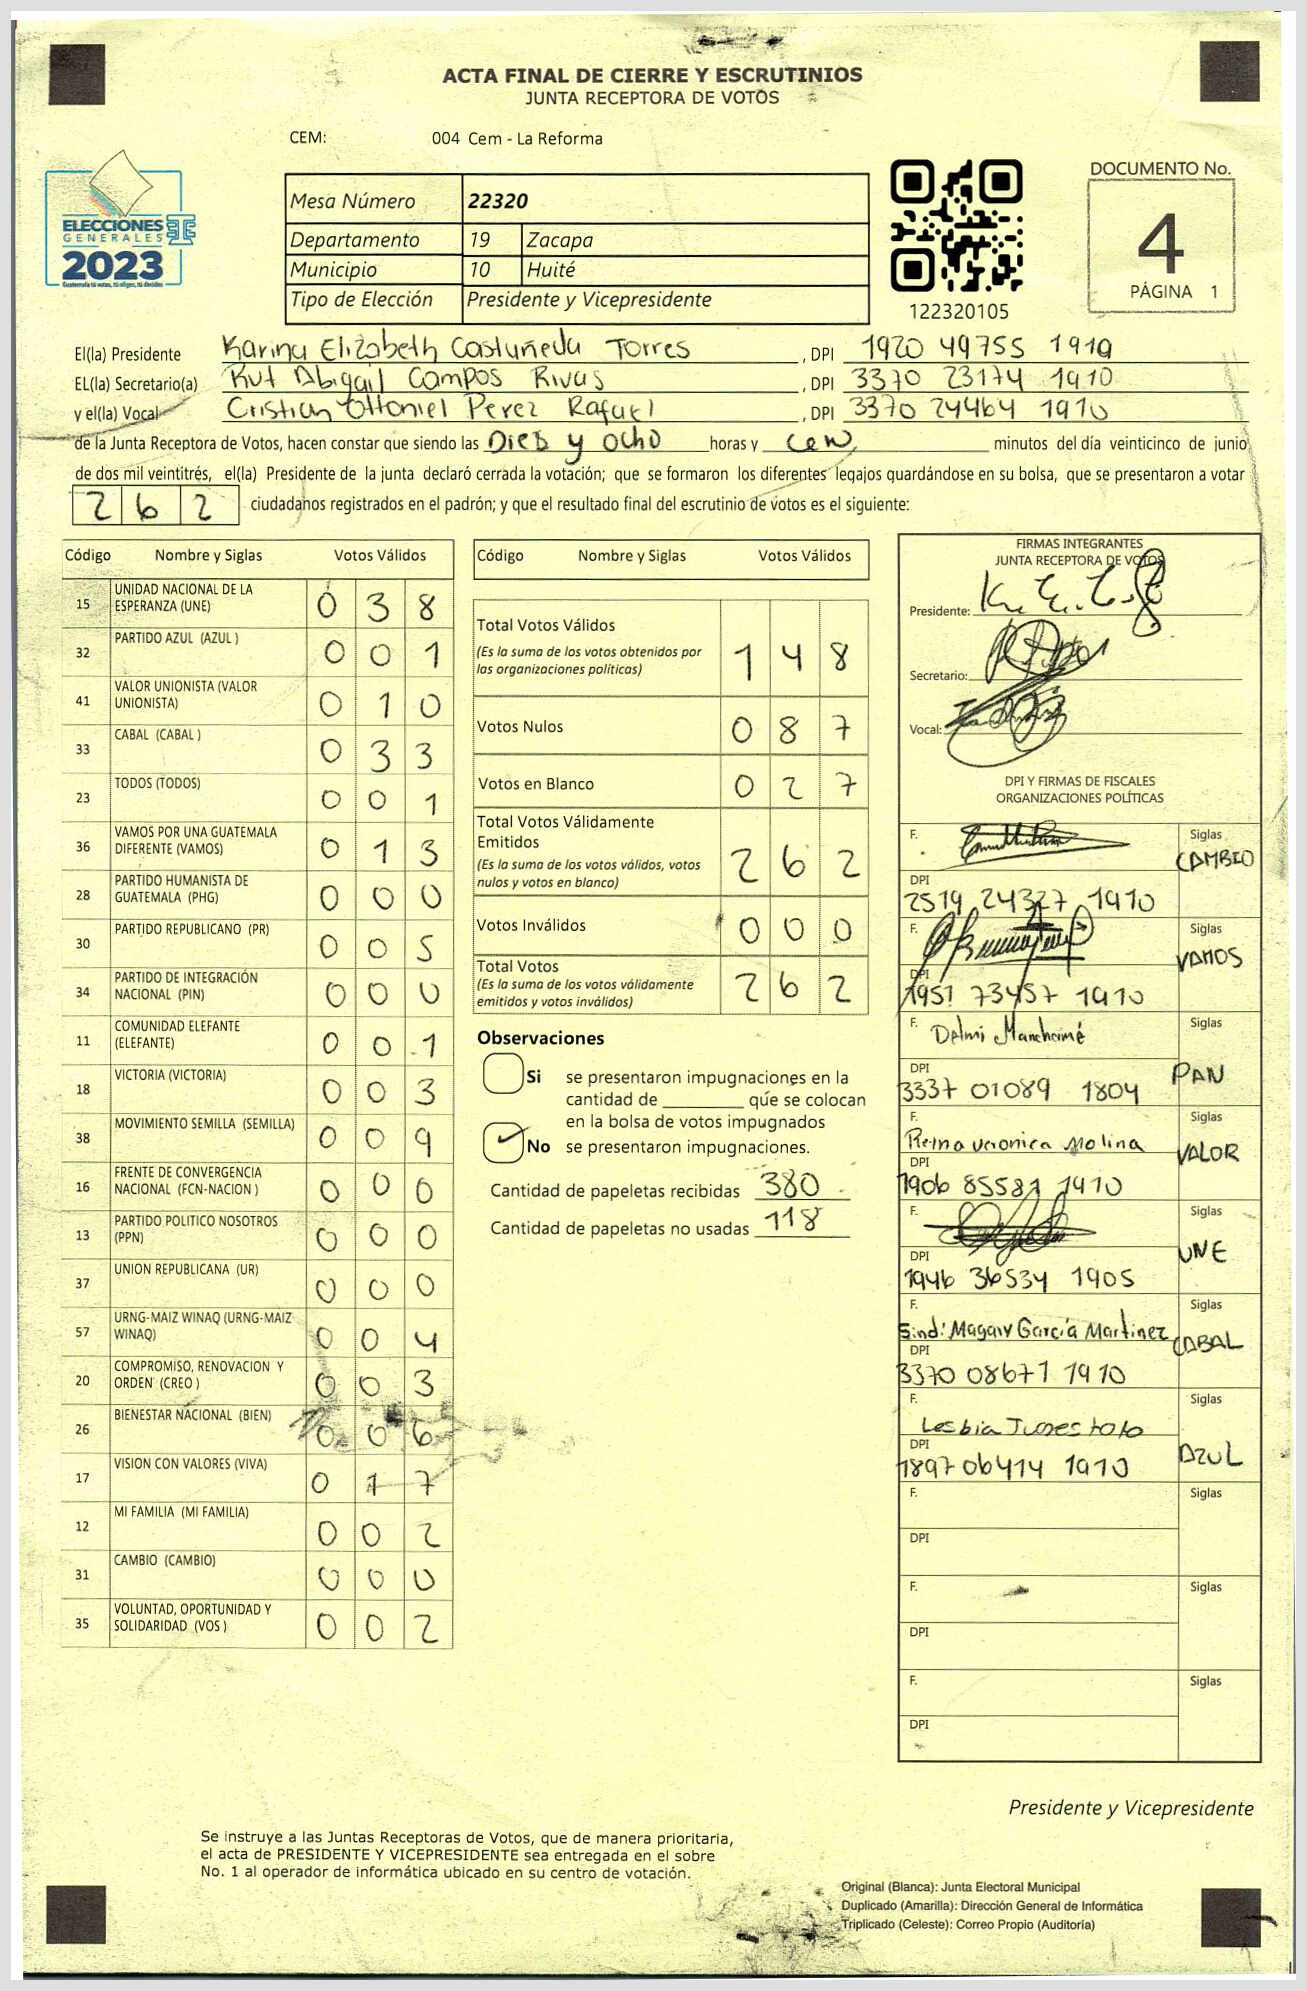 ACTA FINAL DE CIERRE Y ESCRUTINIOS
JUNTA RECEPTORA DE VOTOS
CEM: 004 Cem - La Reforma
ELECCIONES
GENERALES
2023
Guatemala tú votas, tú eliges, tú decides
Mesa Número 22320
Departamento 19 Zacapa
Municipio 10 Huité
Tipo de Elección Presidente y Vicepresidente
122320105
DOCUMENTO No.
4
PÁGINA 1
El(la) Presidente Karina Elizabeth Castuñeda Torres , DPI 1920 49755 1910
EL(la) Secretario(a) Rut Abigail Campos Rivas , DPI 3370 23174 1910
y el(la) Vocal Cristian Ottoniel Perez Rafael , DPI 3370 24464 1910
de la Junta Receptora de Votos, hacen constar que siendo las Dies y ocho horas y cen minutos del día veinticinco de junio
de dos mil veintitrés, el(la) Presidente de la junta declaró cerrada la votación; que se formaron los diferentes legajos guardándose en su bolsa, que se presentaron a votar
262 ciudadanos registrados en el padrón; y que el resultado final del escrutinio de votos es el siguiente:
Código Nombre y Siglas Votos Válidos
15 UNIDAD NACIONAL DE LA ESPERANZA (UNE) 0 3 8
32 PARTIDO AZUL (AZUL ) 0 0 1
41 VALOR UNIONISTA (VALOR UNIONISTA) 0 1 0
33 CABAL (CABAL ) 0 3 3
23 TODOS (TODOS) 0 0 1
36 VAMOS POR UNA GUATEMALA DIFERENTE (VAMOS) 0 1 3
28 PARTIDO HUMANISTA DE GUATEMALA (PHG) 0 0 0
30 PARTIDO REPUBLICANO (PR) 0 0 5
34 PARTIDO DE INTEGRACIÓN NACIONAL (PIN) 0 0 0
11 COMUNIDAD ELEFANTE (ELEFANTE) 0 0 1
18 VICTORIA (VICTORIA) 0 0 3
38 MOVIMIENTO SEMILLA (SEMILLA) 0 0 9
16 FRENTE DE CONVERGENCIA NACIONAL (FCN-NACION ) 0 0 0
13 PARTIDO POLITICO NOSOTROS (PPN) 0 0 0
37 UNION REPUBLICANA (UR) 0 0 0
57 URNG-MAIZ WINAQ (URNG-MAIZ WINAQ) 0 0 4
20 COMPROMISO, RENOVACION Y ORDEN (CREO ) 0 0 3
26 BIENESTAR NACIONAL (BIEN) 0 0 6
17 VISION CON VALORES (VIVA) 0 1 7
12 MI FAMILIA (MI FAMILIA) 0 0 2
31 CAMBIO (CAMBIO) 0 0 0
35 VOLUNTAD, OPORTUNIDAD Y SOLIDARIDAD (VOS ) 0 0 2
Código Nombre y Siglas Votos Válidos
Total Votos Válidos 1 4 8
(Es la suma de los votos obtenidos por
las organizaciones políticas)
Votos Nulos 0 8 7
Votos en Blanco 0 2 7
Total Votos Válidamente
Emitidos 2 6 2
(Es la suma de los votos válidos, votos
nulos y votos en blanco)
Votos Inválidos 0 0 0
Total Votos 2 6 2
(Es la suma de los votos válidamente
emitidos y votos inválidos)
Observaciones
Si se presentaron impugnaciones en la
cantidad de ________ que se colocan
en la bolsa de votos impugnados
No se presentaron impugnaciones.
Cantidad de papeletas recibidas 380
Cantidad de papeletas no usadas 118
FIRMAS INTEGRANTES
JUNTA RECEPTORA DE VOTOS
Presidente:
Secretario:
Vocal:
DPI Y FIRMAS DE FISCALES
ORGANIZACIONES POLÍTICAS
F. Siglas CAMBIO
DPI
2519 24327 1910
F. Siglas VAMOS
DPI
1951 73457 1910
F. Delmi Siglas PAN
DPI
3337 01089 1804
F. Reina veronica Molina VALOR
DPI
1906 85581 1910
F. Siglas UNE
DPI
1946 36534 1905
F. Sindi Magaly García Martinez Siglas CABAL
DPI
3370 08671 1910
F. Lesbia Siglas AZUL
DPI
1897 06414 1910
F. Siglas
DPI
F. Siglas
DPI
F. Siglas
DPI
Presidente y Vicepresidente
Se instruye a las Juntas Receptoras de Votos, que de manera prioritaria,
el acta de PRESIDENTE Y VICEPRESIDENTE sea entregada en el sobre
No. 1 al operador de informática ubicado en su centro de votación.
Original (Blanca): Junta Electoral Municipal
Duplicado (Amarilla): Dirección General de Informática
Triplicado (Celeste): Correo Propio (Auditoría)